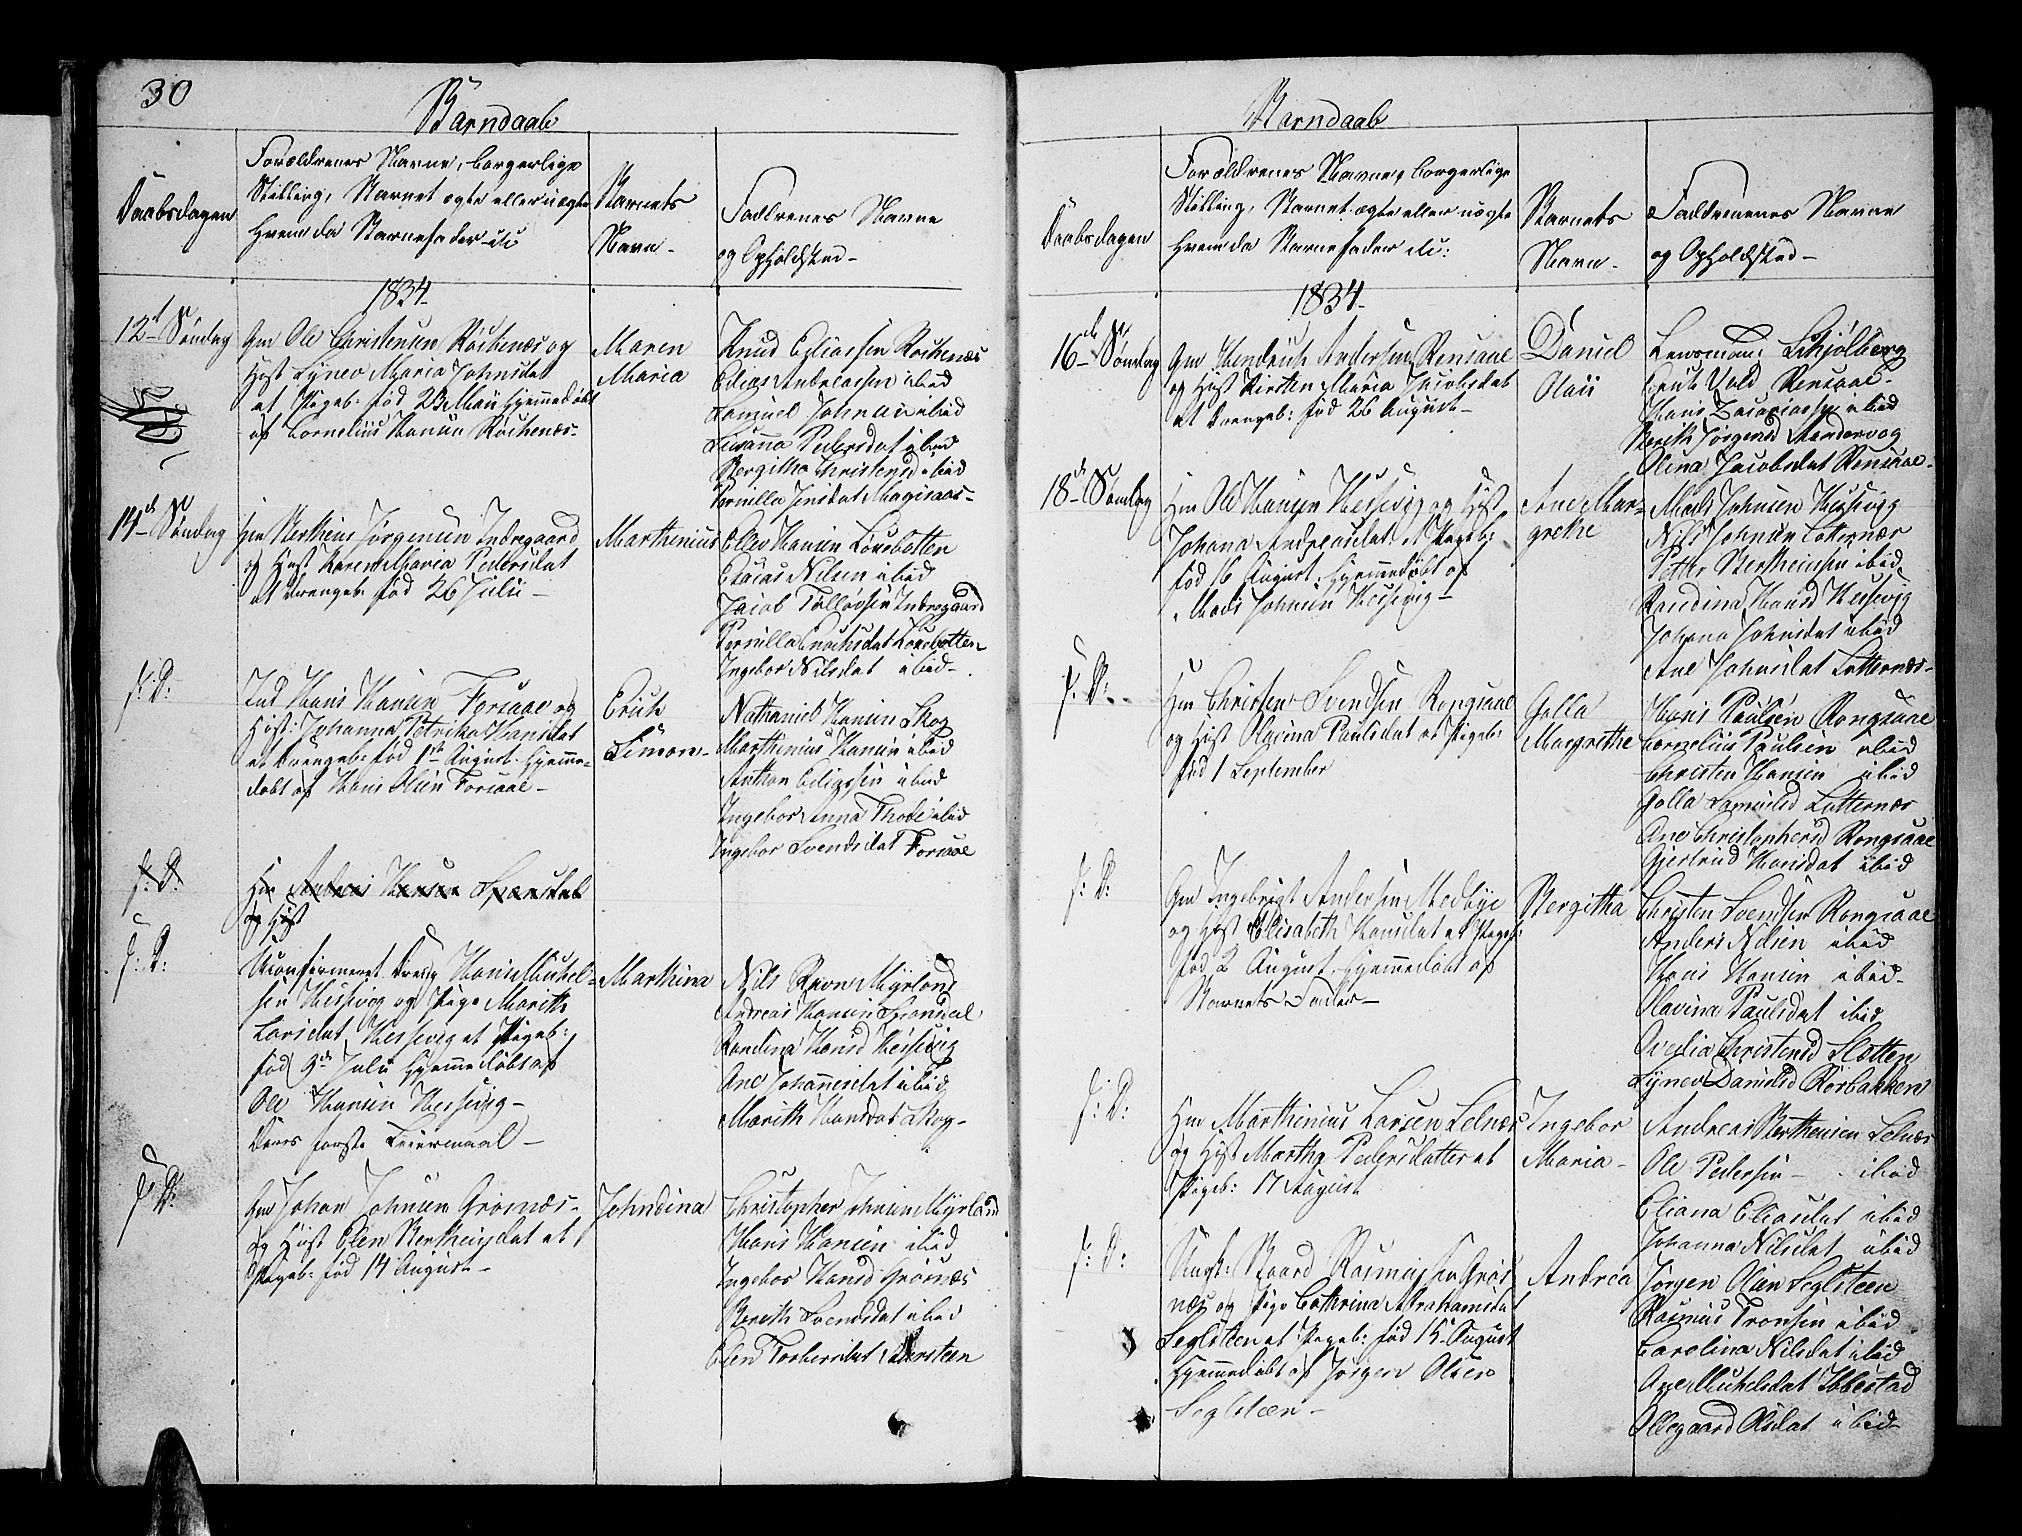 30
Barndaab
Daabsdagen
Forældrenes Navne, borgerlige
Stilling, Barnet ægte eller uægte
hvem da Barnefader etc
Barnets
Navn -
Faddrenes Navne
og Opholdsted -
1834.
12te Søndag
Gm Ole Christensen Rochenæs og
Hust Synev Maria Johnsdat
et Pigeb. fød 23 Mai hjemmedøbt
af Cornelius Hansen Rochenæs-
Maren
Maria
Knud Eliassen Rochenæs
Elias Andreassen ibid
Samuel Johnsen ibid
Susanna Pedersdat ibid
Bergitha Christensd ibid
Pernilla Jensdat
14de Søndag
Hm Bertheus Jørgensen Indregaard
og Hust Karen Maria Pedersdat
et Drengeb. fød 26 Juli -
Marthinius
Ellev Hansen Løvebotten
Esaias Nilsen ibid
Jacob Tollevsen Indregaard
Pernilla Enochsdat Løvebotten
Ingebor Nilsdat ibid -
f: D:
Ind Hans Hansen Forsaae og
Hust: Johanna Petrikka Hansdat
et Drengeb. fød 1te August. hjemme-
døbt af Hans Olsen Forsaae -
Erich
Simon -
Nathaniel Hansen Skog
Marthinius Hansen ibid
Anthon Eliassen ibid
Ingebor Anna Thode ibid
Ingebor Svendsdat Forsaae
f: D:
Hm Andreas Hansen Spansdal
og Hust
f: D:
Uconfirmeret Dreng Hans Michel-
sen Hessevig og Pige Marith
Larsdat Hessevig et Pigeb:
fød 3de Juli hjemmedøbt af
Ole Hansen Hessevig -
Deres første Leiermaal -
Marthina
Nils Ravn Myrland
Andreas Hansen Spansdal
Randina Hansd Hessevig
Ane Johannesdat ibid
Marith Hansdat Skog -
f: D:
Gm Johan Johnsen Grønæs-
og Hust Elen Bertheusdat et
Pigeb: fød 14 August -
Johndina
Christopher Johnsen Myrland
Hans Hansen ibid
Ingebor Hansd Grønæs
Bereth Svendsdat ibid
Elen Torbersdat
Barndaab
Daabsdagen
Forældrenes Navne, borgerlige
Stilling, Barnet ægte eller uægte
hvem da Barnefader etc:
Barnets
Navn -
Faddrenes Navne
og Opholdsted -
1834.
16de Søndag
Gm Hendrich Andersen Rensaae
og Hust Kirsten Maria Jacobsdat
et Drengeb: fød 26 August -
Daniel
Olaii
Lensmand Schjølberg
Vold Rensaae -
Hans Zacariassen ibid
Berith Jørgensd Sandervog
Olina Jacobsdat Rensaae -
18de Søndag
Hm Ole Hansen Hessevig og Hust
Johana Andreasdat. et Pigeb:
fød 16 August, hjemmedøbt af
Mads Johnsen Hessevig -
Ane Mar-
grethe
Mads Johnsen Hessevig
Nils Johnsen Lotternæs
Petter Bertheussen ibid
Randina Hansd Hessevig
Johana Johnsdat ibid
Ane Johnsdat Lotternæs -
f: D: -
Hm Christen Svendsen Rongsaae
og Hust Olavina Paulsdat et Pigeb:
fød 1 September
Golla
Margrethe
Hans Paulsen Rongsaae
Cornelius Paulsen ibid
Christen Hansen ibid
Golla Samuelsd Lotternæs
Ane Christophersd Rongsaae
Gjertrud Hansdat ibid
f: D:
Gm Ingebrigt Andersen Medbye
og Hust Elisabeth Hansdat et Pigeb:
fød 2 August, hjemmedøbt af
Barnets Fader -
Bergitha
Christen Svendsen Rongsaae
Anders Nilsen ibid
Hans Hansen ibid -
Olavina Paulsdat ibid
Christensd Slotten
Synev Danielsd Rørbakken
f: D:
Hm Marthinius Larsen Selnæs
og Hust Martha Pedersdatter et
Pigeb: 17 August
Ingebor
Maria -
Andreas Bertheusen Selnæs
Ole Pedersen - ibid
Eliana Eliasdat ibid
Johanna Nilsdat ibid
f: D:
Baard Rasmussen Grøs
næs og Pige Cathrina Abrahamsdat
Seglsteen et Pigeb: fød 15 August
hjemmedøbt af Jørgen Olsen
Seglsteen -
Andrea
Jørgen Olsen Seglsteen
Rasmus Tronsen ibid
Carolina Nilsdat ibid
Ane Michelsdat Ibbestad
Ollegaard Olsdat ibid